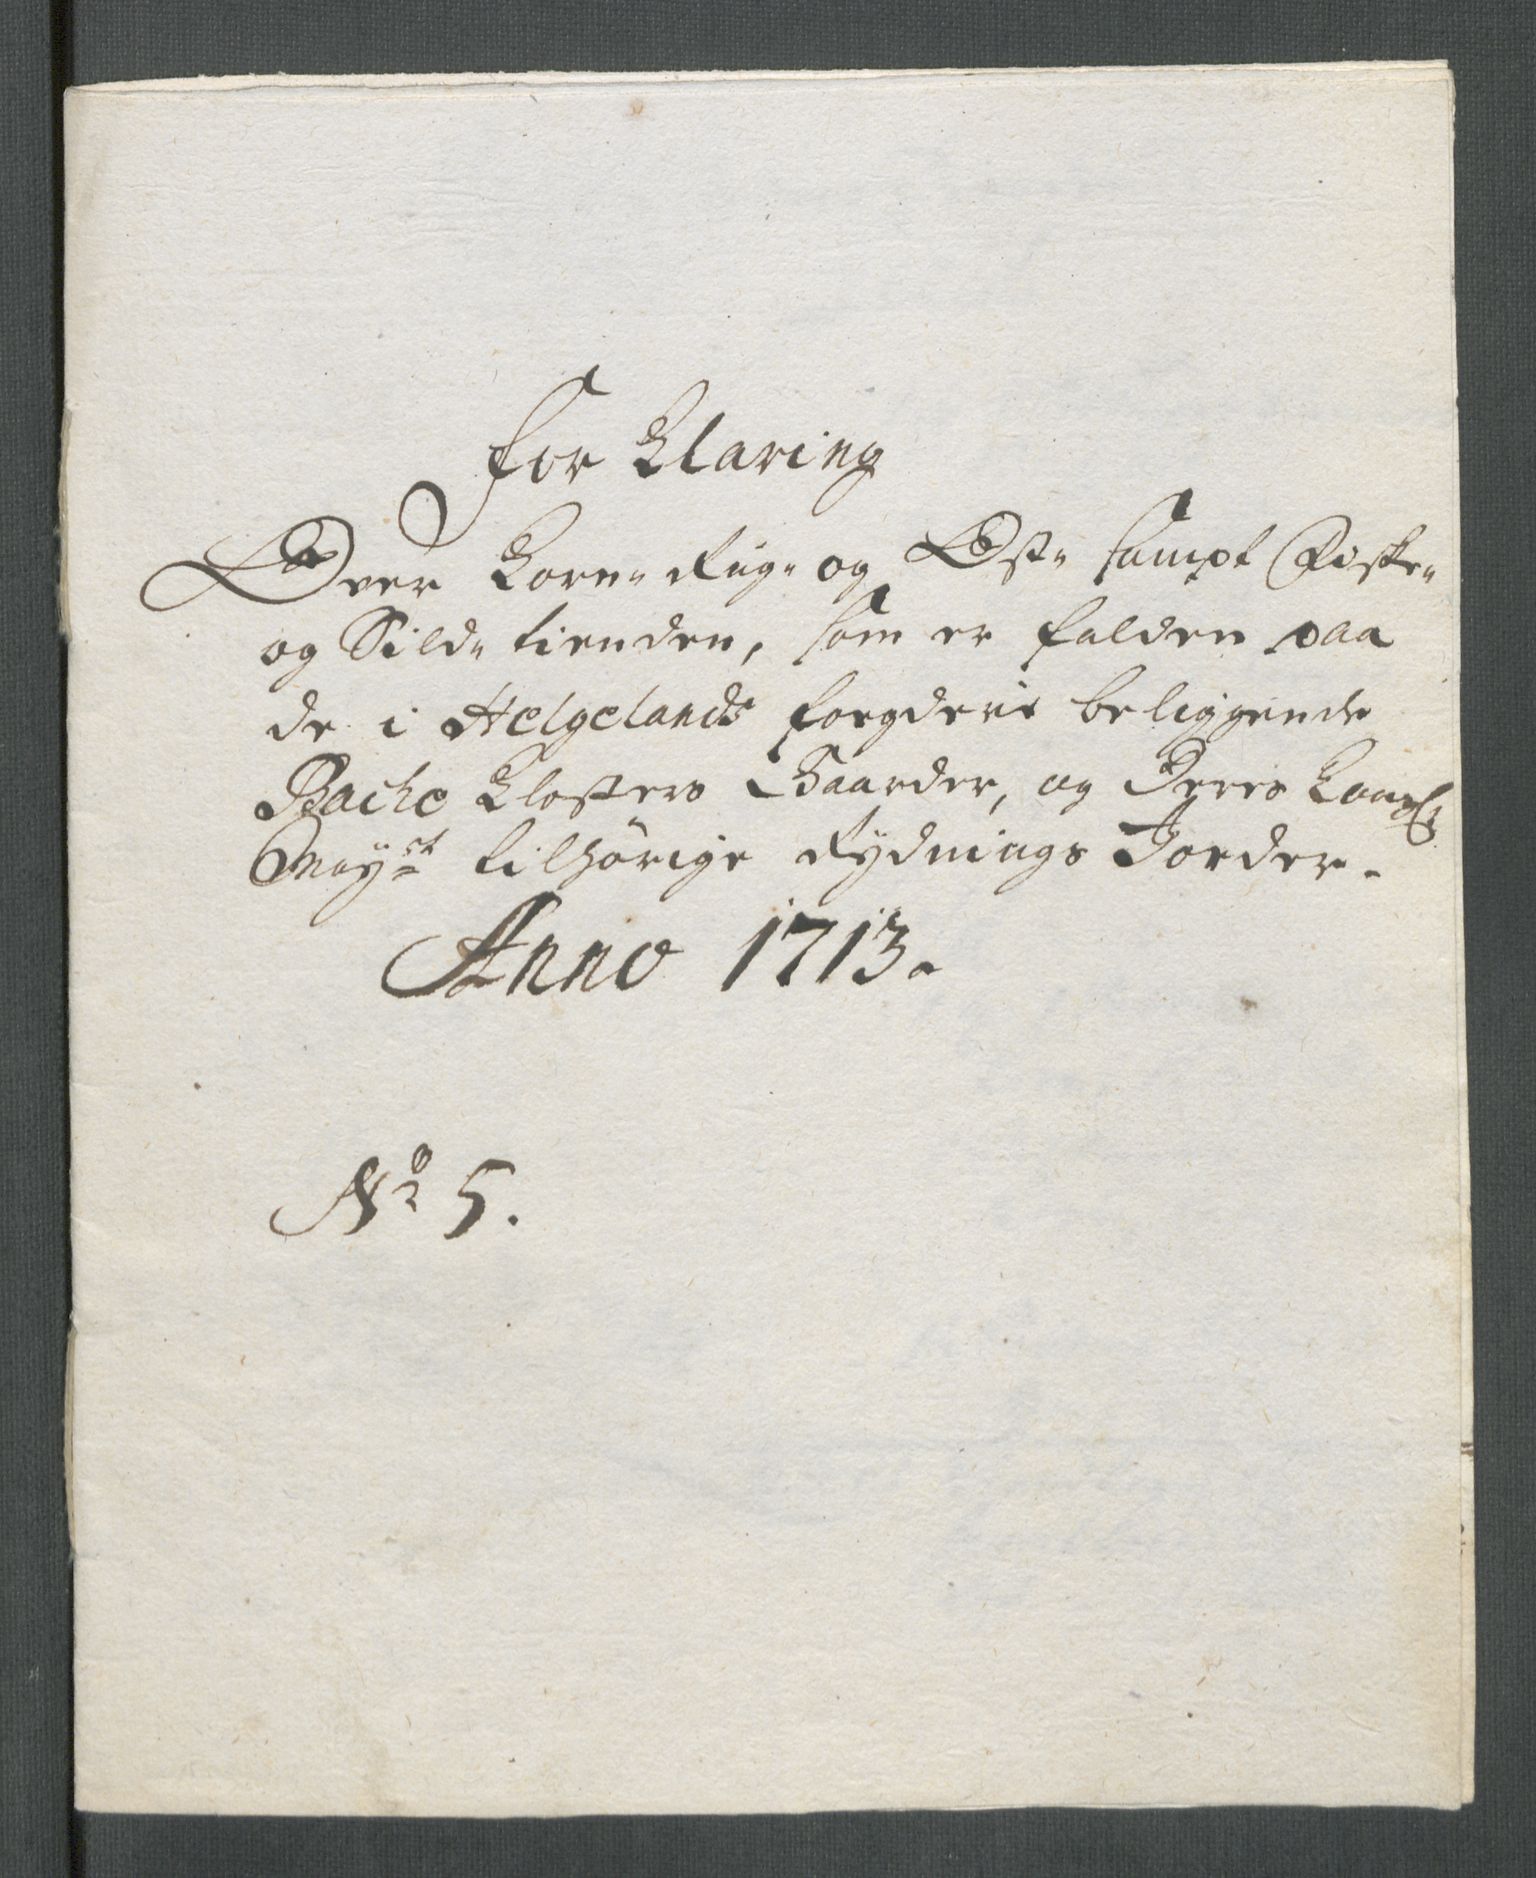 for Klaring
Over Korn- Rug- og Ost- sampt Fiske-
og Sild- tienden, som er falden paa
de i Helgelands foegderie beliggende
Bache Klosters Gaarder, og Deris Kongl:
May.st tilhörige Rydnings Jorder.
Anno 1713.
No 5.